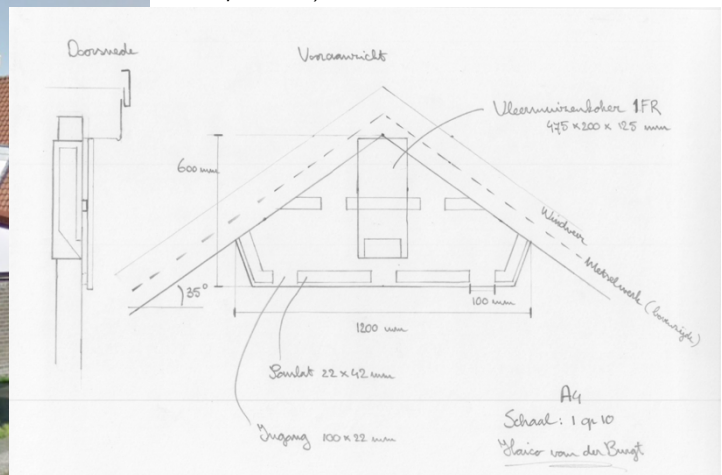 Doorsnede
Vooraanzicht
Vleermuizenkoker 1FR
475 x 200 x 125 mm
600 mm
Windveer
Metselwerk (bovenzijde)
35°
100 mm
1200 mm
Panlat 22 x 42 mm
Ingang 100 x 22 mm
A4
Schaal: 1 op 10
Haico van der Burgt